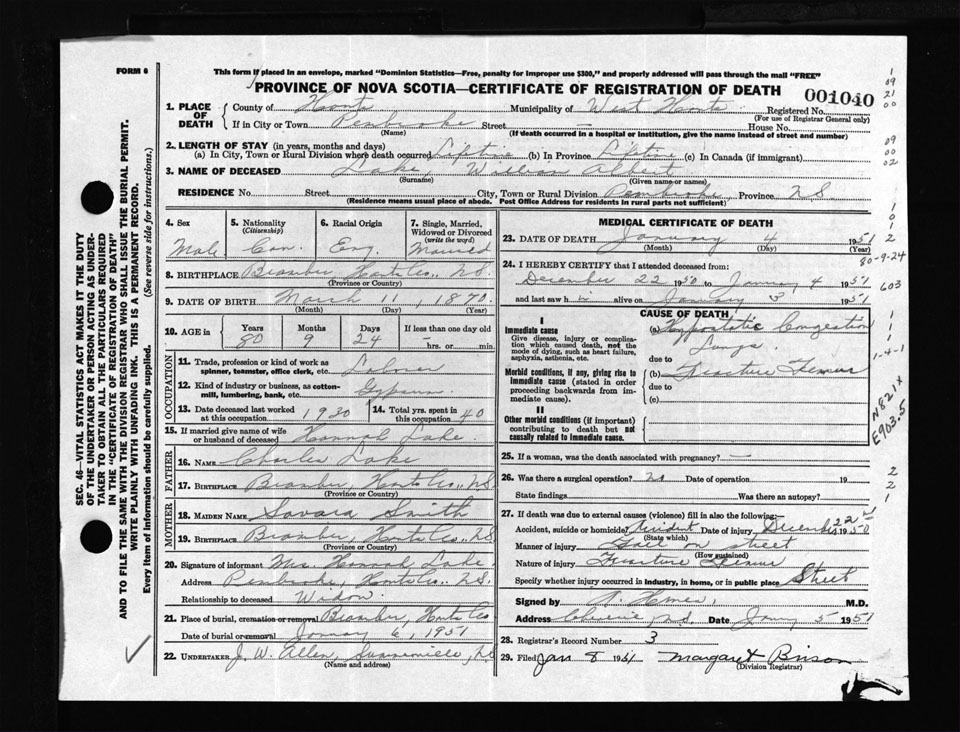 FORM 6
This form if placed in an envelope, marked "Dominion Statistics—Free, penalty for improper use $300," and properly addressed will pass through the mail "FREE"
PROVINCE OF NOVA SCOTIA—CERTIFICATE OF REGISTRATION OF DEATH
001040
1. PLACE OF DEATH County of Hants Municipality of West Hants Registered No.
(For use of Registrar General only)
If in City or Town Pembroke Street — House No.
(Name) (If death occurred in a hospital or institution, give the name instead of street and number)
2. LENGTH OF STAY (in years, months and days)
(a) In City, Town or Rural Division where death occurred Liftime (b) In Province Liftime (c) In Canada (if immigrant)
3. NAME OF DECEASED Lake, William Albert
(Surname) (Given name or names)
RESIDENCE No. Street City, Town or Rural Division Pembroke, Province NS
(Residence means usual place of abode. Post Office Address for residents in rural parts not sufficient)
4. Sex 5. Nationality (Citizenship) 6. Racial Origin 7. Single, Married, Widowed or Divorced (write the word)
Male Can. Eng. Married
8. BIRTHPLACE Bramber Hants Co., NS
(Province or Country)
9. DATE OF BIRTH March 11, 1870
(Month) (Day) (Year)
10. AGE in Years Months Days If less than one day old
80 9 24 — hrs. or min.
OCCUPATION
11. Trade, profession or kind of work as spinner, teamster, office clerk, etc. Laborer
12. Kind of industry or business, as cotton-mill, lumbering, bank, etc. Gypsum
13. Date deceased last worked at this occupation 1930 14. Total yrs. spent in this occupation 40
15. If married give name of wife or husband of deceased Hannah Lake.
FATHER
16. NAME Charles Lake
17. BIRTHPLACE Bramber, Hants Co., NS
(Province or Country)
MOTHER
18. MAIDEN NAME Savara Smith
19. BIRTHPLACE Bramber, Hants Co., NS
(Province or Country)
20. Signature of informant Mrs. Hannah Lake.
Address Pembroke, Hants Co. NS.
Relationship to deceased Widow.
21. Place of burial, cremation or removal Bramber, Hants Co
Date of burial or removal January 6, 1951
22. UNDERTAKER J. W. Allen, NS
(Name and address)
MEDICAL CERTIFICATE OF DEATH
23. DATE OF DEATH January 4 1951
(Month) (Day) (Year)
24. I HEREBY CERTIFY that I attended deceased from:
December 22 1950 to January 4 1951
and last saw h im alive on January 3 1951
CAUSE OF DEATH
I
Immediate cause
Give disease, injury or complication which caused death, not the mode of dying, such as heart failure, asphyxia, asthenia, etc.
(a) Hypostatic Congestion
Lungs
due to
Morbid conditions, if any, giving rise to immediate cause (stated in order proceeding backwards from immediate cause).
(b) Fracture Femur
due to
(c)
II
Other morbid conditions (if important) contributing to death but not causally related to immediate cause.
25. If a woman, was the death associated with pregnancy? —
26. Was there a surgical operation? no Date of operation 19
State findings Was there an autopsy?
27. If death was due to external causes (violence) fill in also the following:
Accident, suicide or homicide? Accident Date of injury December 22 1950
(State which)
Manner of injury Fall on street
(How sustained)
Nature of injury Fracture Femur
Specify whether injury occurred in industry, in home, or in public place Street
Signed by M.D.
Address N.S. Date January 5 1951
28. Registrar's Record Number 3
29. Filed Jan 8 1951 Margaret Brison
(Division Registrar)
SEC. 46—VITAL STATISTICS ACT MAKES IT THE DUTY
OF THE UNDERTAKER OR PERSON ACTING AS UNDER-
TAKER TO OBTAIN ALL THE PARTICULARS REQUIRED
IN THE "CERTIFICATE OF REGISTRATION OF DEATH"
AND TO FILE THE SAME WITH THE DIVISION REGISTRAR WHO SHALL ISSUE THE BURIAL PERMIT.
WRITE PLAINLY WITH UNFADING INK. THIS IS A PERMANENT RECORD.
Every item of Information should be carefully supplied. (See reverse side for instructions.)
1
09
21
00
09
00
02
1
0
1
2
80-9-24
603
1
1
1
1-4-1
N821X
E903.5
2
2
1